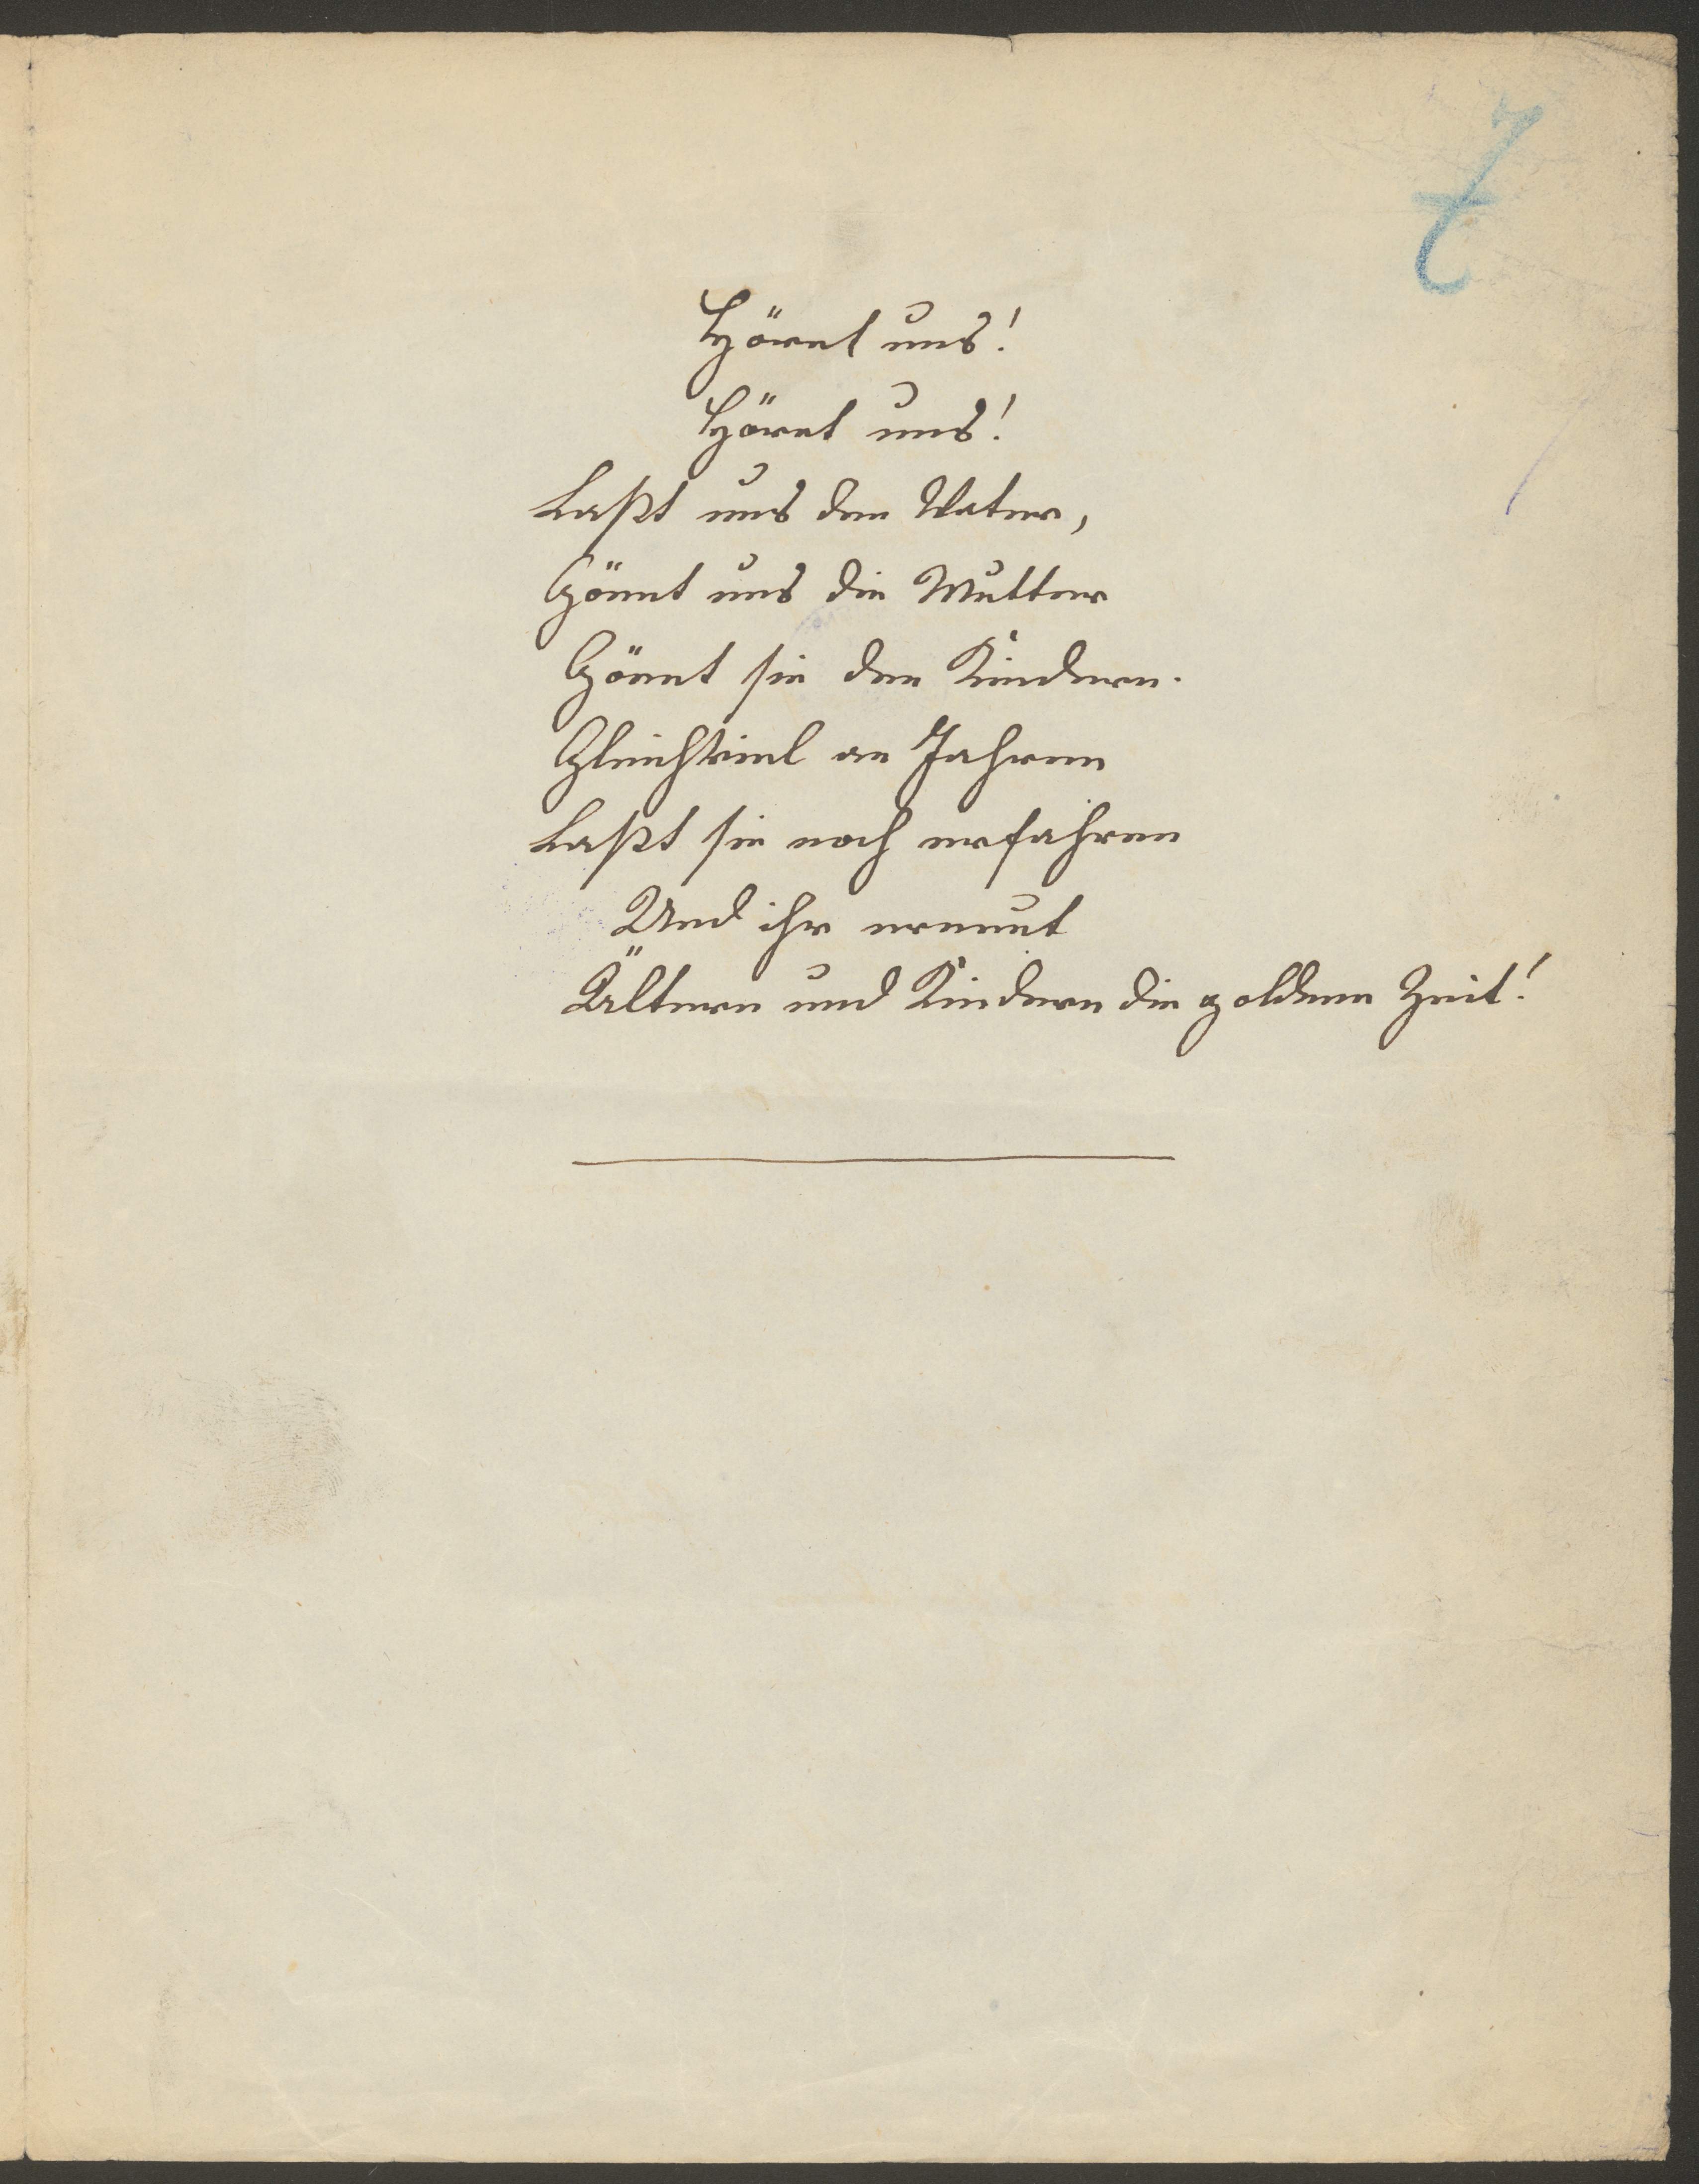 7
Höret uns!
Höret uns!
Laßt uns den Vater,
Gönnt uns die Mutter
Gönnt sie den Kindern.
Gleichviel an Jahren
Laßt sie noch erfahren
Und ihr erneut
Ältern und Kindern die goldene Zeit!